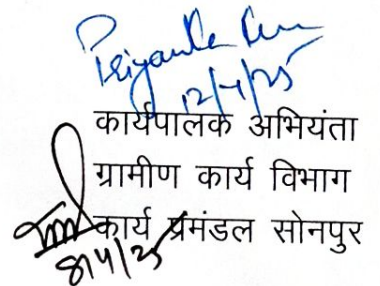 Priyanka
12/4/25
कार्यपालक अभियंता
ग्रामीण कार्य विभाग
कार्य प्रमंडल सोनपुर
8/4/25